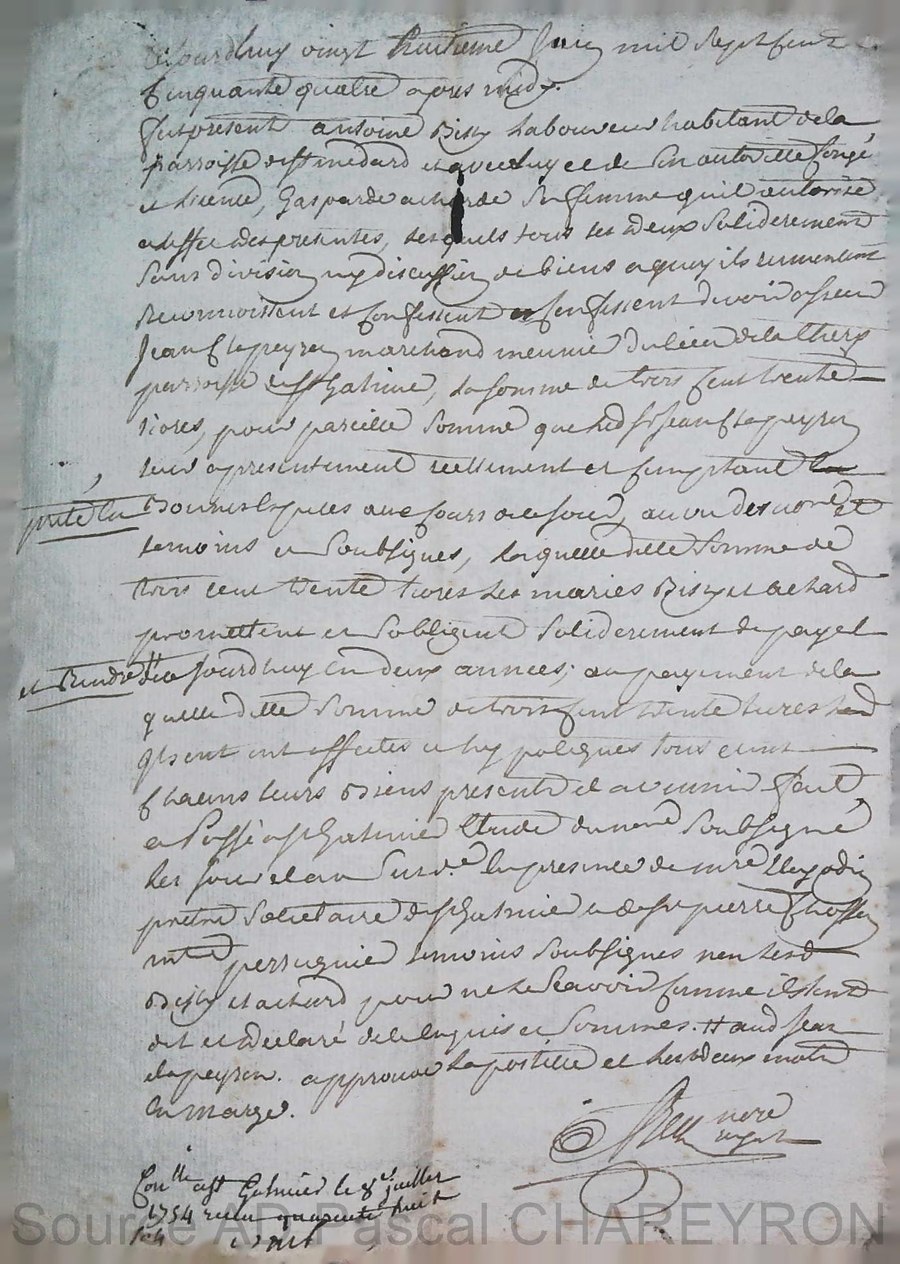 vingt huitieme Juin mil Sept Cent
Cinquante quatre apres midy.
fut present antoine Bissy Laboureur habitant de la
parroisse de St medard et avec luy et de son autorité Congé
et Licence, Gasparde achard Sa femme quil autorise
a Leffet des presentes, Lesquels tous Les deux Soliderement
Sans division ny discussion de biens a quoy ils renoncent
Reconnoissent et Confessent devoir a Sieur
Jean Clapeyron marchand meunier du Lieu de la Thery
parroisse de St Galmier, La Somme de trois Cent trente
Livres, pour pareille Somme que led Sr Jean Clapeyron
leur a presentement reellement et Comptant
preté en
Bonnes Especes aux Cours de ce jour, au vu des nore et
temoins Soubsignes, Laquelle ditte Somme de
trois cent trente Livres Les mariés Bissy et achard
promettent et Sobligent Soliderement de payer
et Rendre #
dicy a jourdhuy En deux années; au payement de la
quelle ditte Somme de trois Cent trente Livres Lesd
ont affectés et hypotequés tous et un
Chacuns Leurs Biens presents et avenir fait
et Passé a St Galmier Etude du nore Soubsigné
Les jour et an Susd. En presence de mre
pretre Societaire de St Galmier et de Sr pierre
md perruquier temoins Soubsignes non Lesd
Bissy et achard pour ne le Scavoir Comme ils ont
dit et declaré de ce Enquis et Sommés. # aud Jean
Clapeyron. approuvé La postille et Les deux mots
En marge.
nore
royal
Conllé a St Galmier le 8e juillet
1754 recu quarante huit
sols